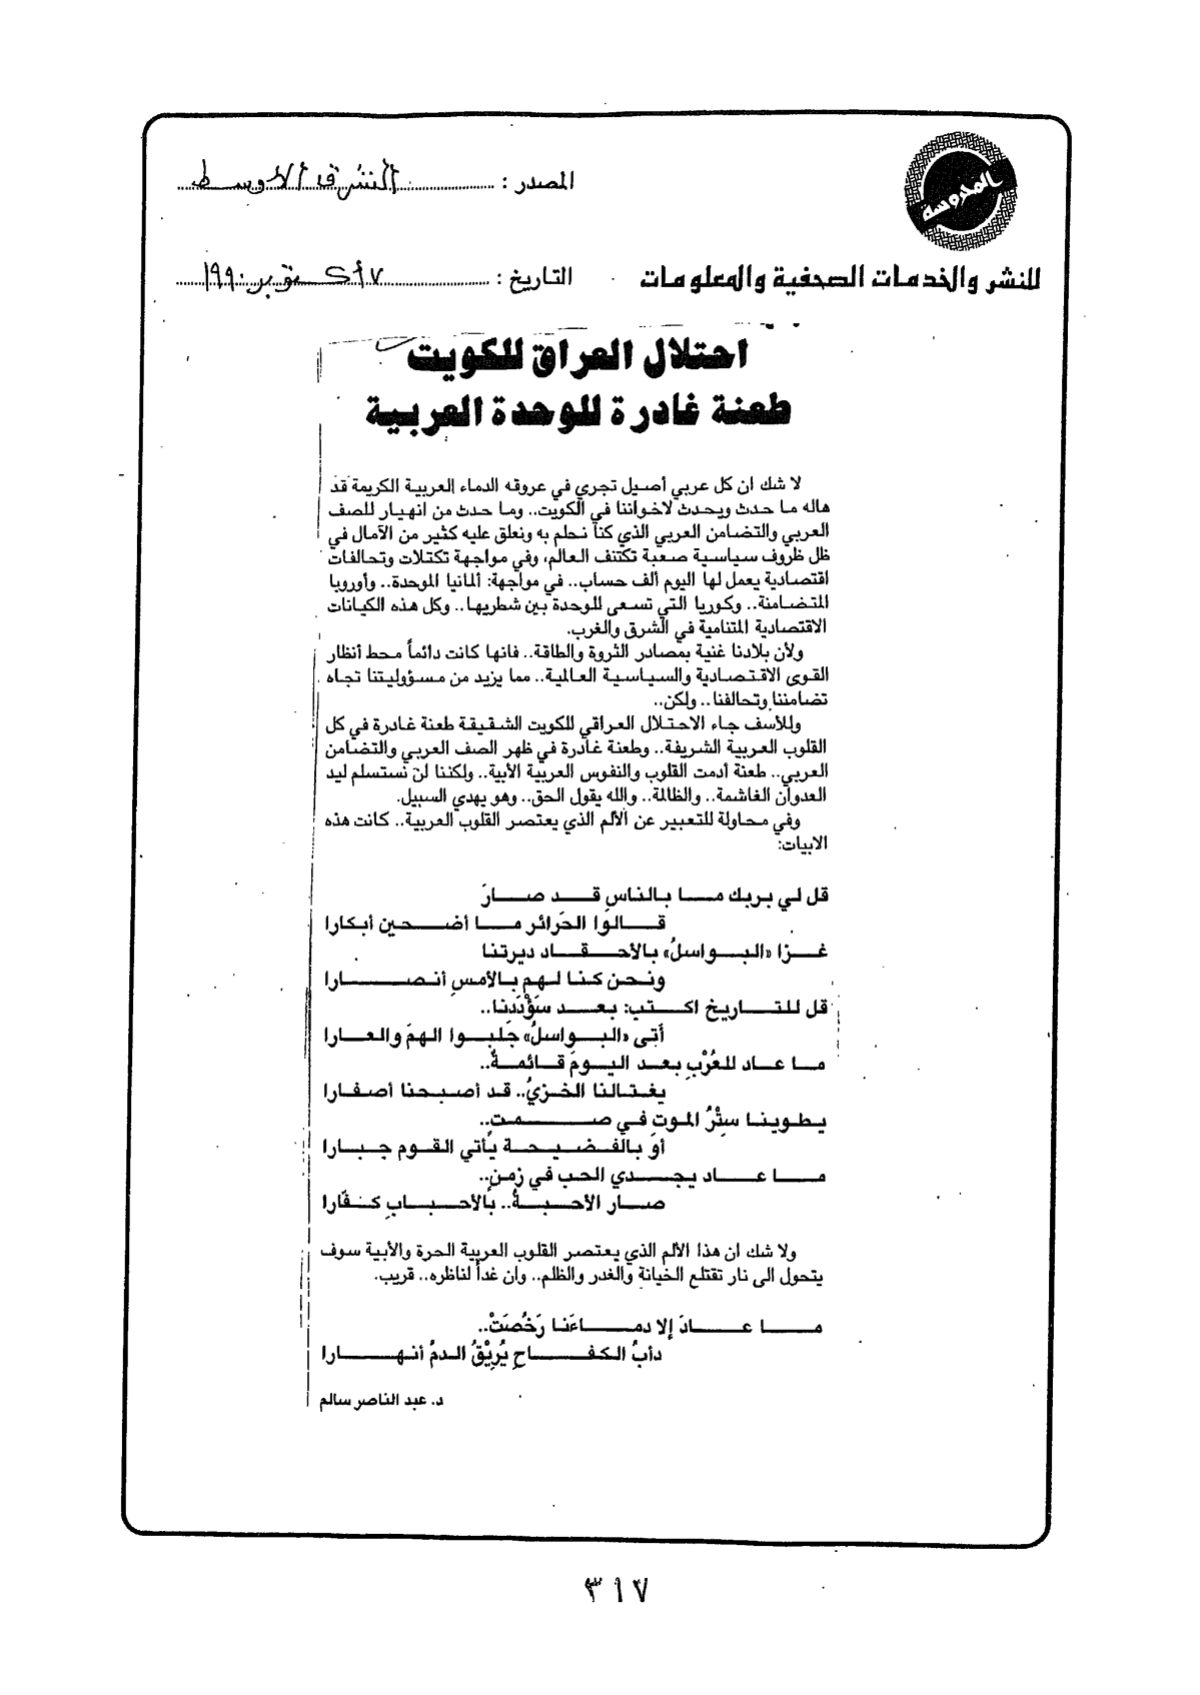 المحروسة
المصدر : الشرق الاوسط
للنشر والخدمات الصحفية والمعلومات
التاريخ : ٧ أكتوبر ١٩٩٠
احتلال العراق للكويت
طعنة غادرة للوحدة العربية
لا شك ان كل عربي أصيل تجري في عروقه الدماء العربية الكريمة قد
هاله ما حدث ويحدث لاخواننا في الكويت.. وما حدث من انهيار للصف
العربي والتضامن العربي الذي كنا نحلم به ونعلق عليه كثير من الآمال في
ظل ظروف سياسية صعبة تكتنف العالم، وفي مواجهة تكتلات وتحالفات
اقتصادية يعمل لها اليوم ألف حساب.. في مواجهة: ألمانيا الموحدة.. وأوروبا
المتضامنة.. وكوريا التي تسعى للوحدة بين شطريها.. وكل هذه الكيانات
الاقتصادية المتنامية في الشرق والغرب.
ولأن بلادنا غنية بمصادر الثروة والطاقة.. فانها كانت دائماً محط أنظار
القوى الاقتصادية والسياسية العالمية.. مما يزيد من مسؤوليتنا تجاه
تضامننا وتحالفنا.. ولكن..
وللأسف جاء الاحتلال العراقي للكويت الشقيقة طعنة غادرة في كل
القلوب العربية الشريفة.. وطعنة غادرة في ظهر الصف العربي والتضامن
العربي.. طعنة أدمت القلوب والنفوس العربية الأبية.. ولكننا لن نستسلم ليد
العدوان الغاشمة.. والظالمة.. والله يقول الحق.. وهو يهدي السبيل.
وفي محاولة للتعبير عن الألم الذي يعتصر القلوب العربية.. كانت هذه
الابيات:
قل لي بربك ما بالناسِ قد صارَ
قالوا الحَرائر ما أضحين أبكارا
غزا «البواسلُ» بالأحقاد ديرتنا
ونحن كنا لهم بالأمسِ أنصارا
قل للتاريخ اكتب: بعد سَؤْدَدنا..
أتى «البواسلُ» جَلبوا الهمَ والعارا
ما عاد للعُرْبِ بعد اليومَ قائمةٌ..
يغتالنا الخزيُ.. قد أصبحنا أصفارا
يطوينا سِتْرُ الموتِ في صمتٍ..
أوَ بالفضيحة يأتي القوم جبارا
ما عاد يجدي الحب في زمنٍ..
صار الأحبةُ.. بالأحبابِ كفّارا
ولا شك ان هذا الألم الذي يعتصر القلوب العربية الحرة والأبية سوف
يتحول الى نار تقتلع الخيانة والغدر والظلم.. وان غداً لناظره.. قريب.
ما عادَ إلا دماءَنا رَخُصَتْ..
دأبُ الكفاحِ يُرِيْقُ الدمُ أنهارا
د. عبد الناصر سالم
٣١٧